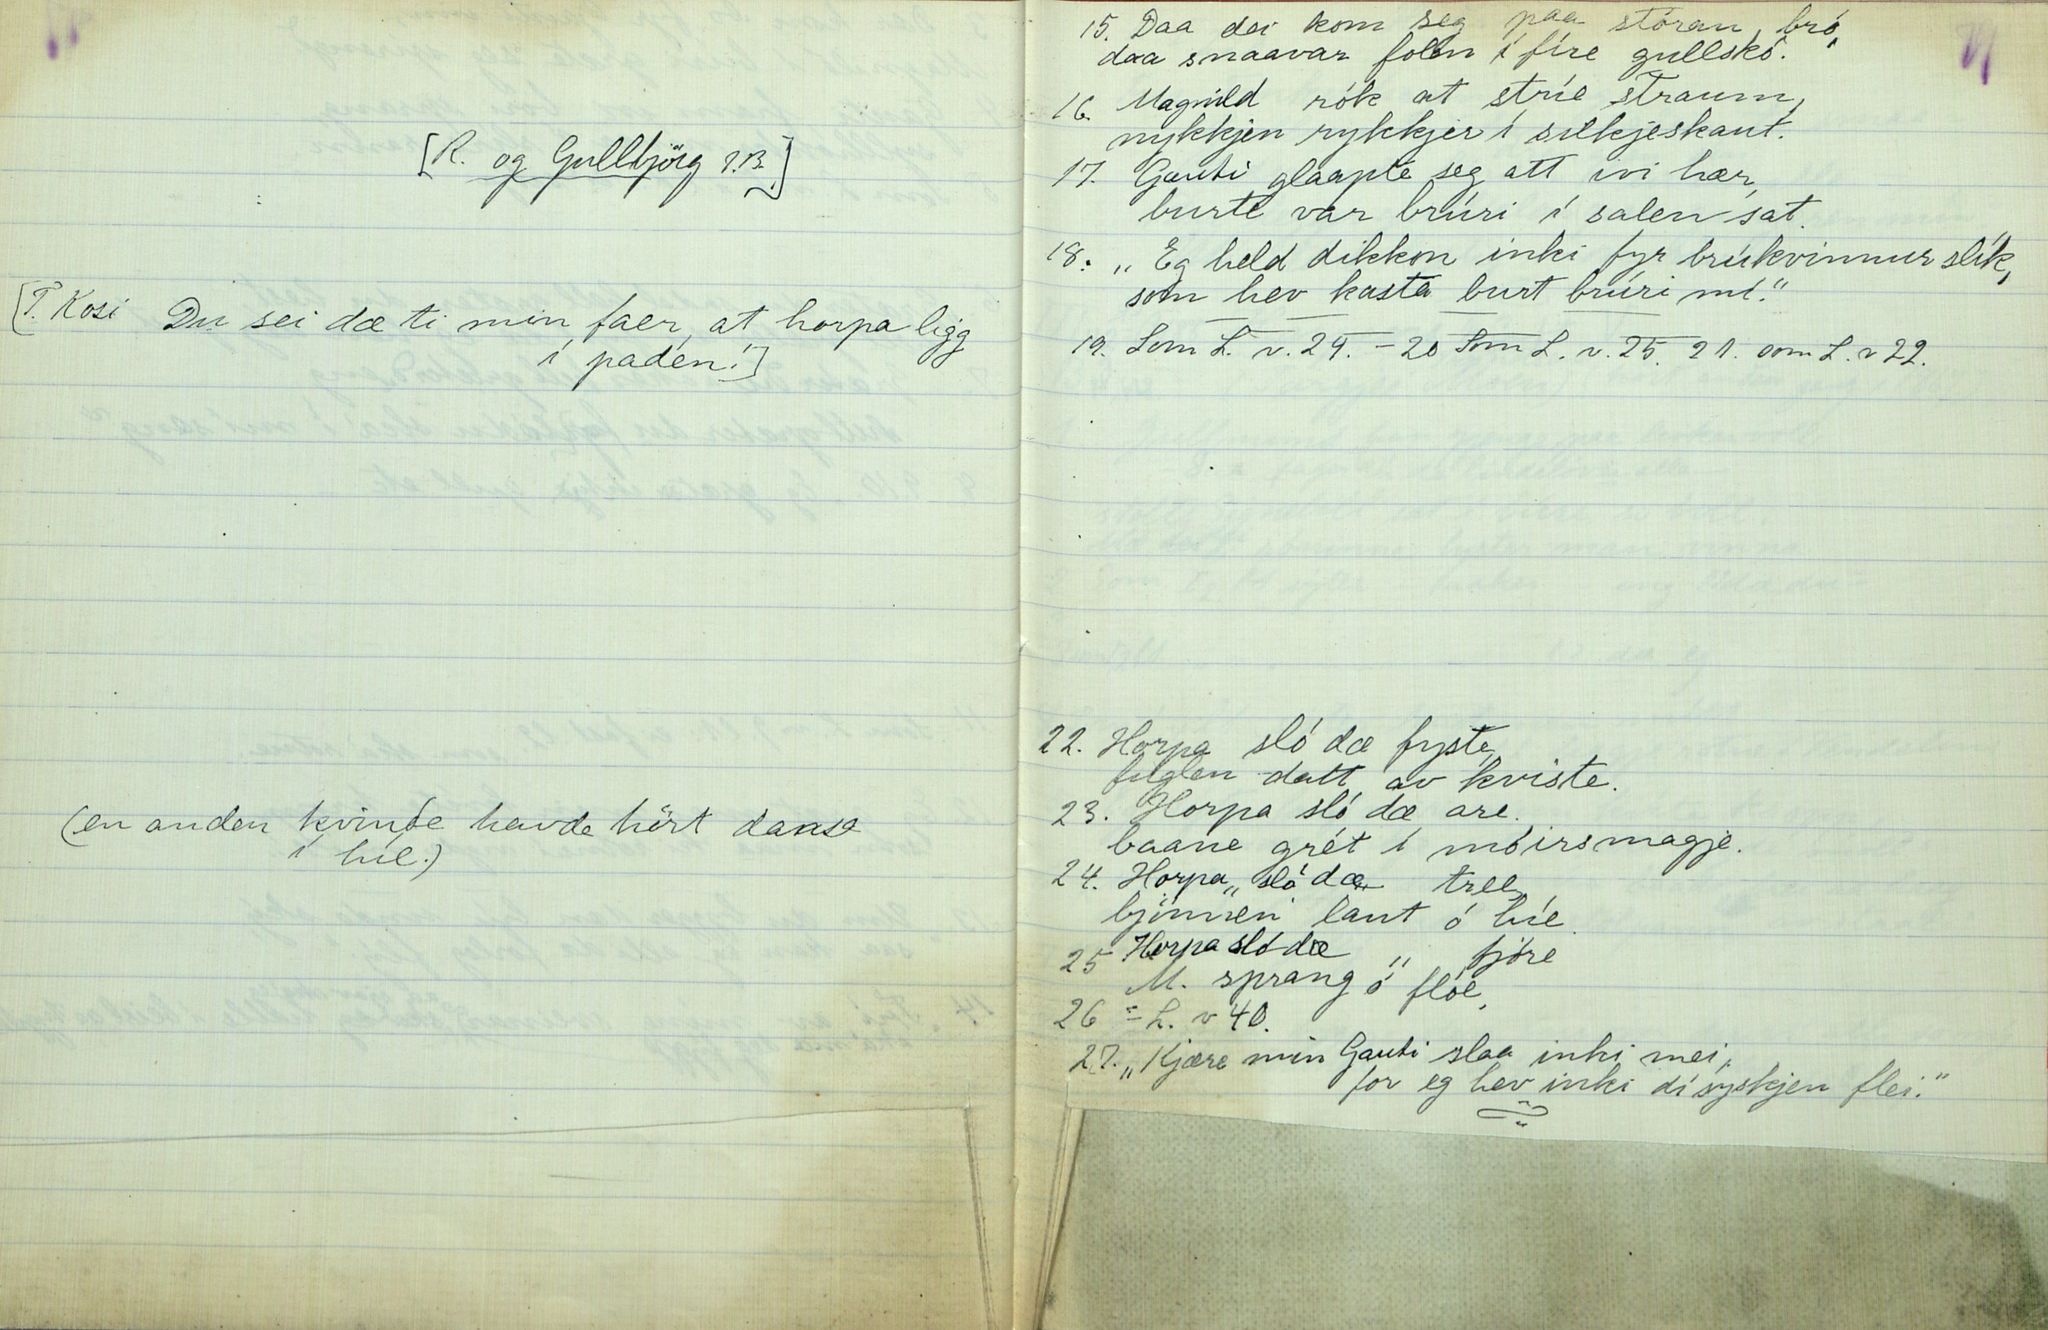 [R. og Gullbjörg J.B.]
[T. Kosi Du sei dæ ti min faer, at horpa ligg
í padén!]
(en anden kvinde havde hört danse
í híe.)
15. Daa dei kom seg paa stóran bró,
daa snaavar folen í fíre gullskó.
16. Magníld rók at stríe straum,
nykkjen rykkjer í silkjeskaut.
17. Gauti glaapte seg att ivi hær,
burte var brúri í salen sat.
18. „Eg held dikkon inki fyr brúkvinnur slík,
som hev kasta burt brúri mí."
19. Som L. v. 24. – 20 Som L. v. 25. 21. som L. v 22.
22. Horpa sló dæ fyste,
fuglen datt av kviste.
23. Horpa sló dæ are.
baane grét í móirsmagje.
24. Horpa „ sló dæ „ tree,
bjinnen laut ó híe.
25 Horpa sló dæ „ fjóre
M. sprang ó flóe,
26 = L. v 40.
27. „Kjære min Gauti slaa inki mei,
for eg hev inki dí syskjen flei."